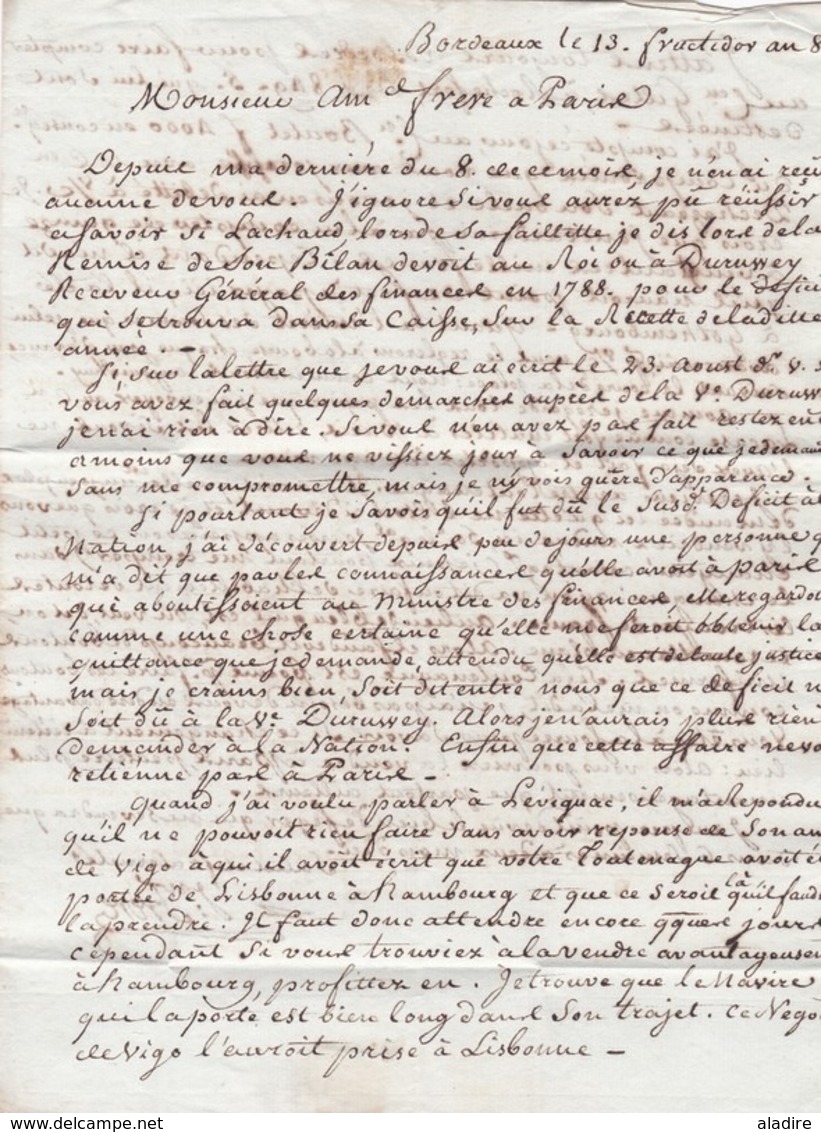 Bordeaux le 13. fructidor an 8
Monsieur Am.d frere a Paris
Depuis ma derniére du 8. de ce mois, je n'en ai reçu
aucune de vous. J'ignore si vous aurèz pû réussir
a savoir si Lachaud, lors de sa faillitte je dis lors de la
Remise de son Bilan devoit au Roi ou à Duruwey
Receveur Général des finances en 1788. pour le deficit
qui se trouva dans sa Caisse, sur la Récette de ladite
année. —
Si, sur la lettre que je vous ai écrit le 23. Aoust d.r v. s.
vous avez fait quelques démarches auprès de la V.e Duruw
je n'ai rien à dire. Si vous n'en avez pas fait restez en
a moins que vous ne vissiez jour à savoir ce que je deman
sans me compromettre, mais je n'y vois guère d'apparence.
Si pourtant je savois qu'il fut dû le susd.t Deficit à l
Nation, j'ai découvert depuis peu de jours une personne q
m'a dit que par les connaissances qu'elle avoit à Paris
qui aboutissoient au Ministre des finances, elle regardo
comme une chose certaine qu'elle me feroit obtenir la
quittance que je demande, attendu qu'elle est de toute justice
mais je crains bien, soit dit entre nous que ce deficit n
soit dû à la V.e Duruwey. Alors je n'aurais plus rien
demander à la Nation. Enfin que cette affaire ne vo
retiénne pas à Paris —
Quand j'ai voulu parler à Lévignac, il m'a repondu
qu'il ne pouvoit rien faire sans avoir reponse de son am
de Vigo à qui il avoit écrit que votre Toutenague avoit ét
portée de Lisbonne à hambourg et que ce seroit là qu'il faud
la prendre. Il faut donc attendre encore qques jours
cépendant si vous trouviez à la vendre avantageusem
à hambourg, profittez en. Je trouve que le Navire
qui la porté, est bien long dans son trajet. Ce Négo
de Vigo l'auroit prise à Lisbonne —
delcampe.net
aladire